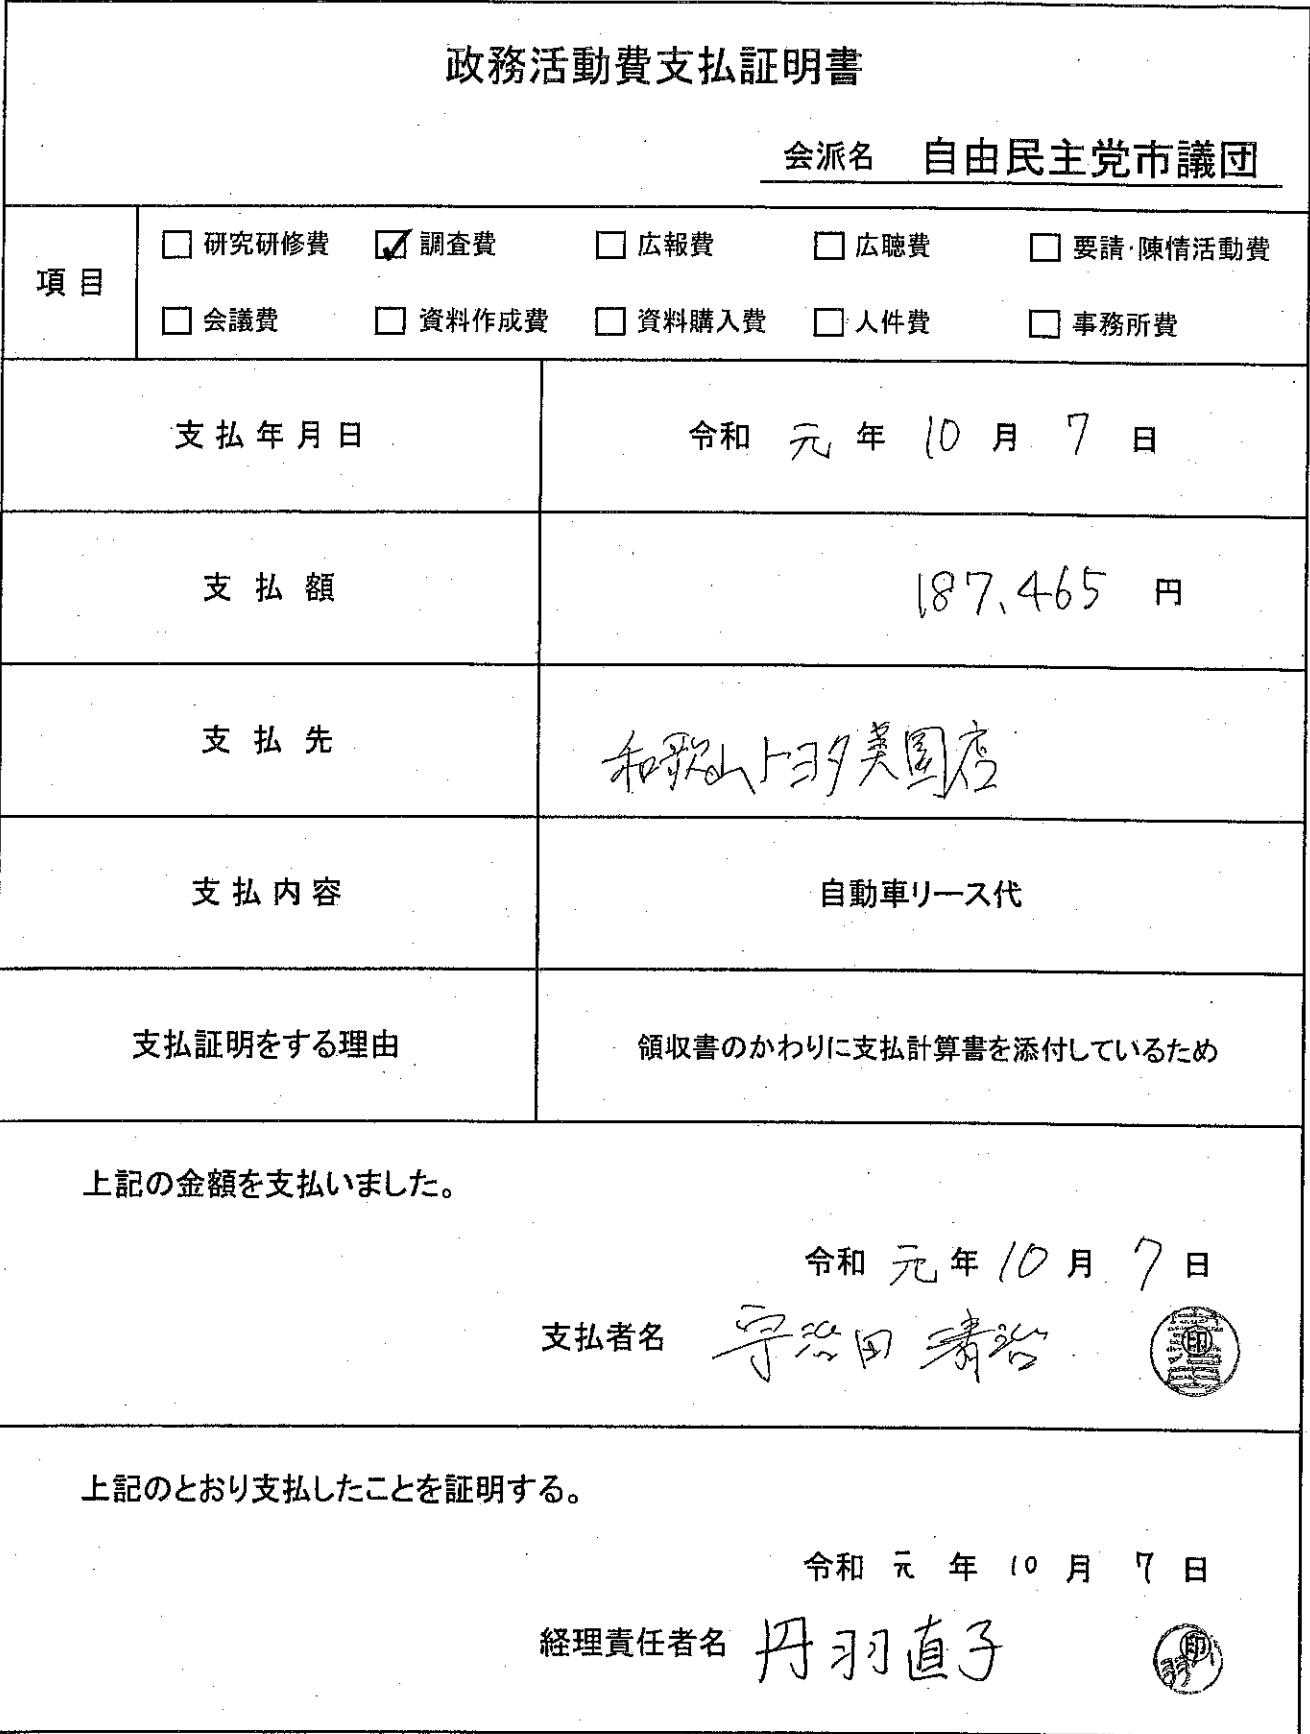 政務活動費支払証明書
会派名 自由民主党市議団
項目
□ 研究研修費 ☑ 調査費 □ 広報費 □ 広聴費 □ 要請・陳情活動費
□ 会議費 □ 資料作成費 □ 資料購入費 □ 人件費 □ 事務所費
支払年月日 令和 元 年 10 月 7 日
支払額 187,465 円
支払先 和歌山トヨタ美園店
支払内容 自動車リース代
支払証明をする理由 領収書のかわりに支払計算書を添付しているため
上記の金額を支払いました。
令和 元 年 10 月 7 日
支払者名 宇治田 清治 印
上記のとおり支払したことを証明する。
令和 元 年 10 月 7 日
経理責任者名 丹羽直子 印